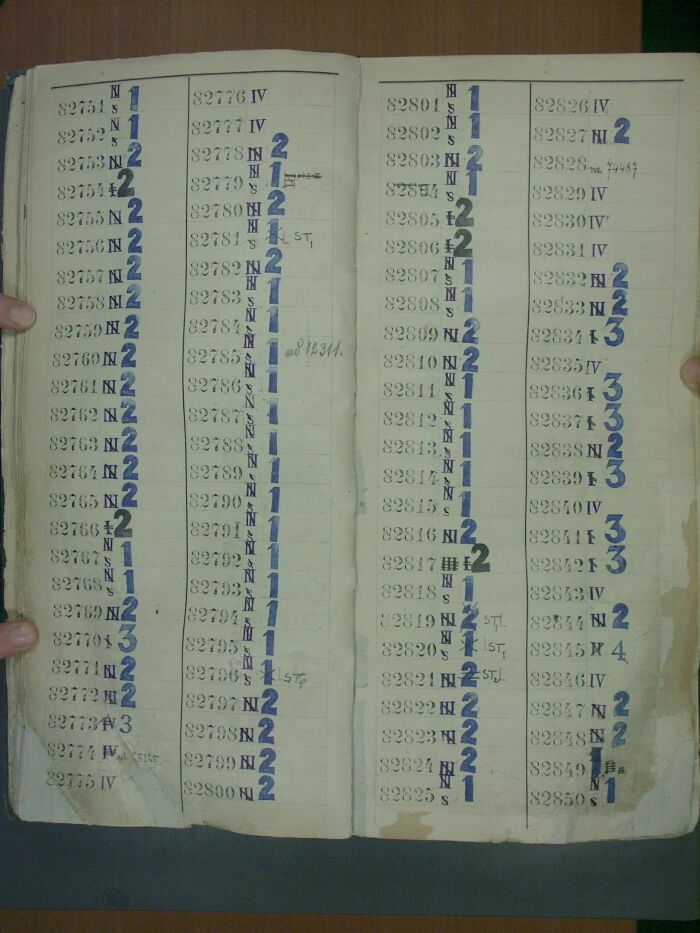 82751 N S 1
82752 N S 1
82753 N 2
82754 I 2
82755 N 2
82756 N 2
82757 N 2
82758 N 2
82759 N 2
82760 N 2
82761 N 2
82762 N 2
82763 N 2
82764 N 2
82765 N 2
82766 I 2
82767 N S 1
82768 N S 1
82769 N 2
82770 I 3
82771 N 2
82772 N 2
82773 IV 3
82774 IV
82775 IV
82776 IV
82777 IV
82778 N 2
82779 N S 1
82780 N 2
82781 N S 1 ST1
82782 N 2
82783 N S 1
82784 N S 1
82785 N S 1 12311.
82786 N S 1
82787 N S 1
82788 N S 1
82789 N S 1
82790 N S 1
82791 N S 1
82792 N S 1
82793 N S 1
82794 N S 1
82795 N S 1
82796 N S 1 ST1
82797 N 2
82798 N 2
82799 N 2
82800 N 2
82801 N S 1
82802 N S 1
82803 N 2
82804 N S 1
82805 I 2
82806 I 2
82807 N S 1
82808 N S 1
82809 N 2
82810 N 2
82811 N S 1
82812 N S 1
82813 N S 1
82814 N S 1
82815 N S 1
82816 N 2
82817 I 2
82818 N S 1
82819 N 2 ST
82820 N S 1 ST1
82821 N 2 ST
82822 N 2
82823 N 2
82824 N 2
82825 N S 1
82826 IV
82827 N 2
82828 74487
82829 IV
82830 IV
82831 IV
82832 N 2
82833 N 2
82834 I 3
82835 IV
82836 I 3
82837 I 3
82838 N 2
82839 I 3
82840 IV
82841 I 3
82842 I 3
82843 IV
82844 N 2
82845 4
82846 IV
82847 N 2
82848 N 2
82849 1
82850 N S 1